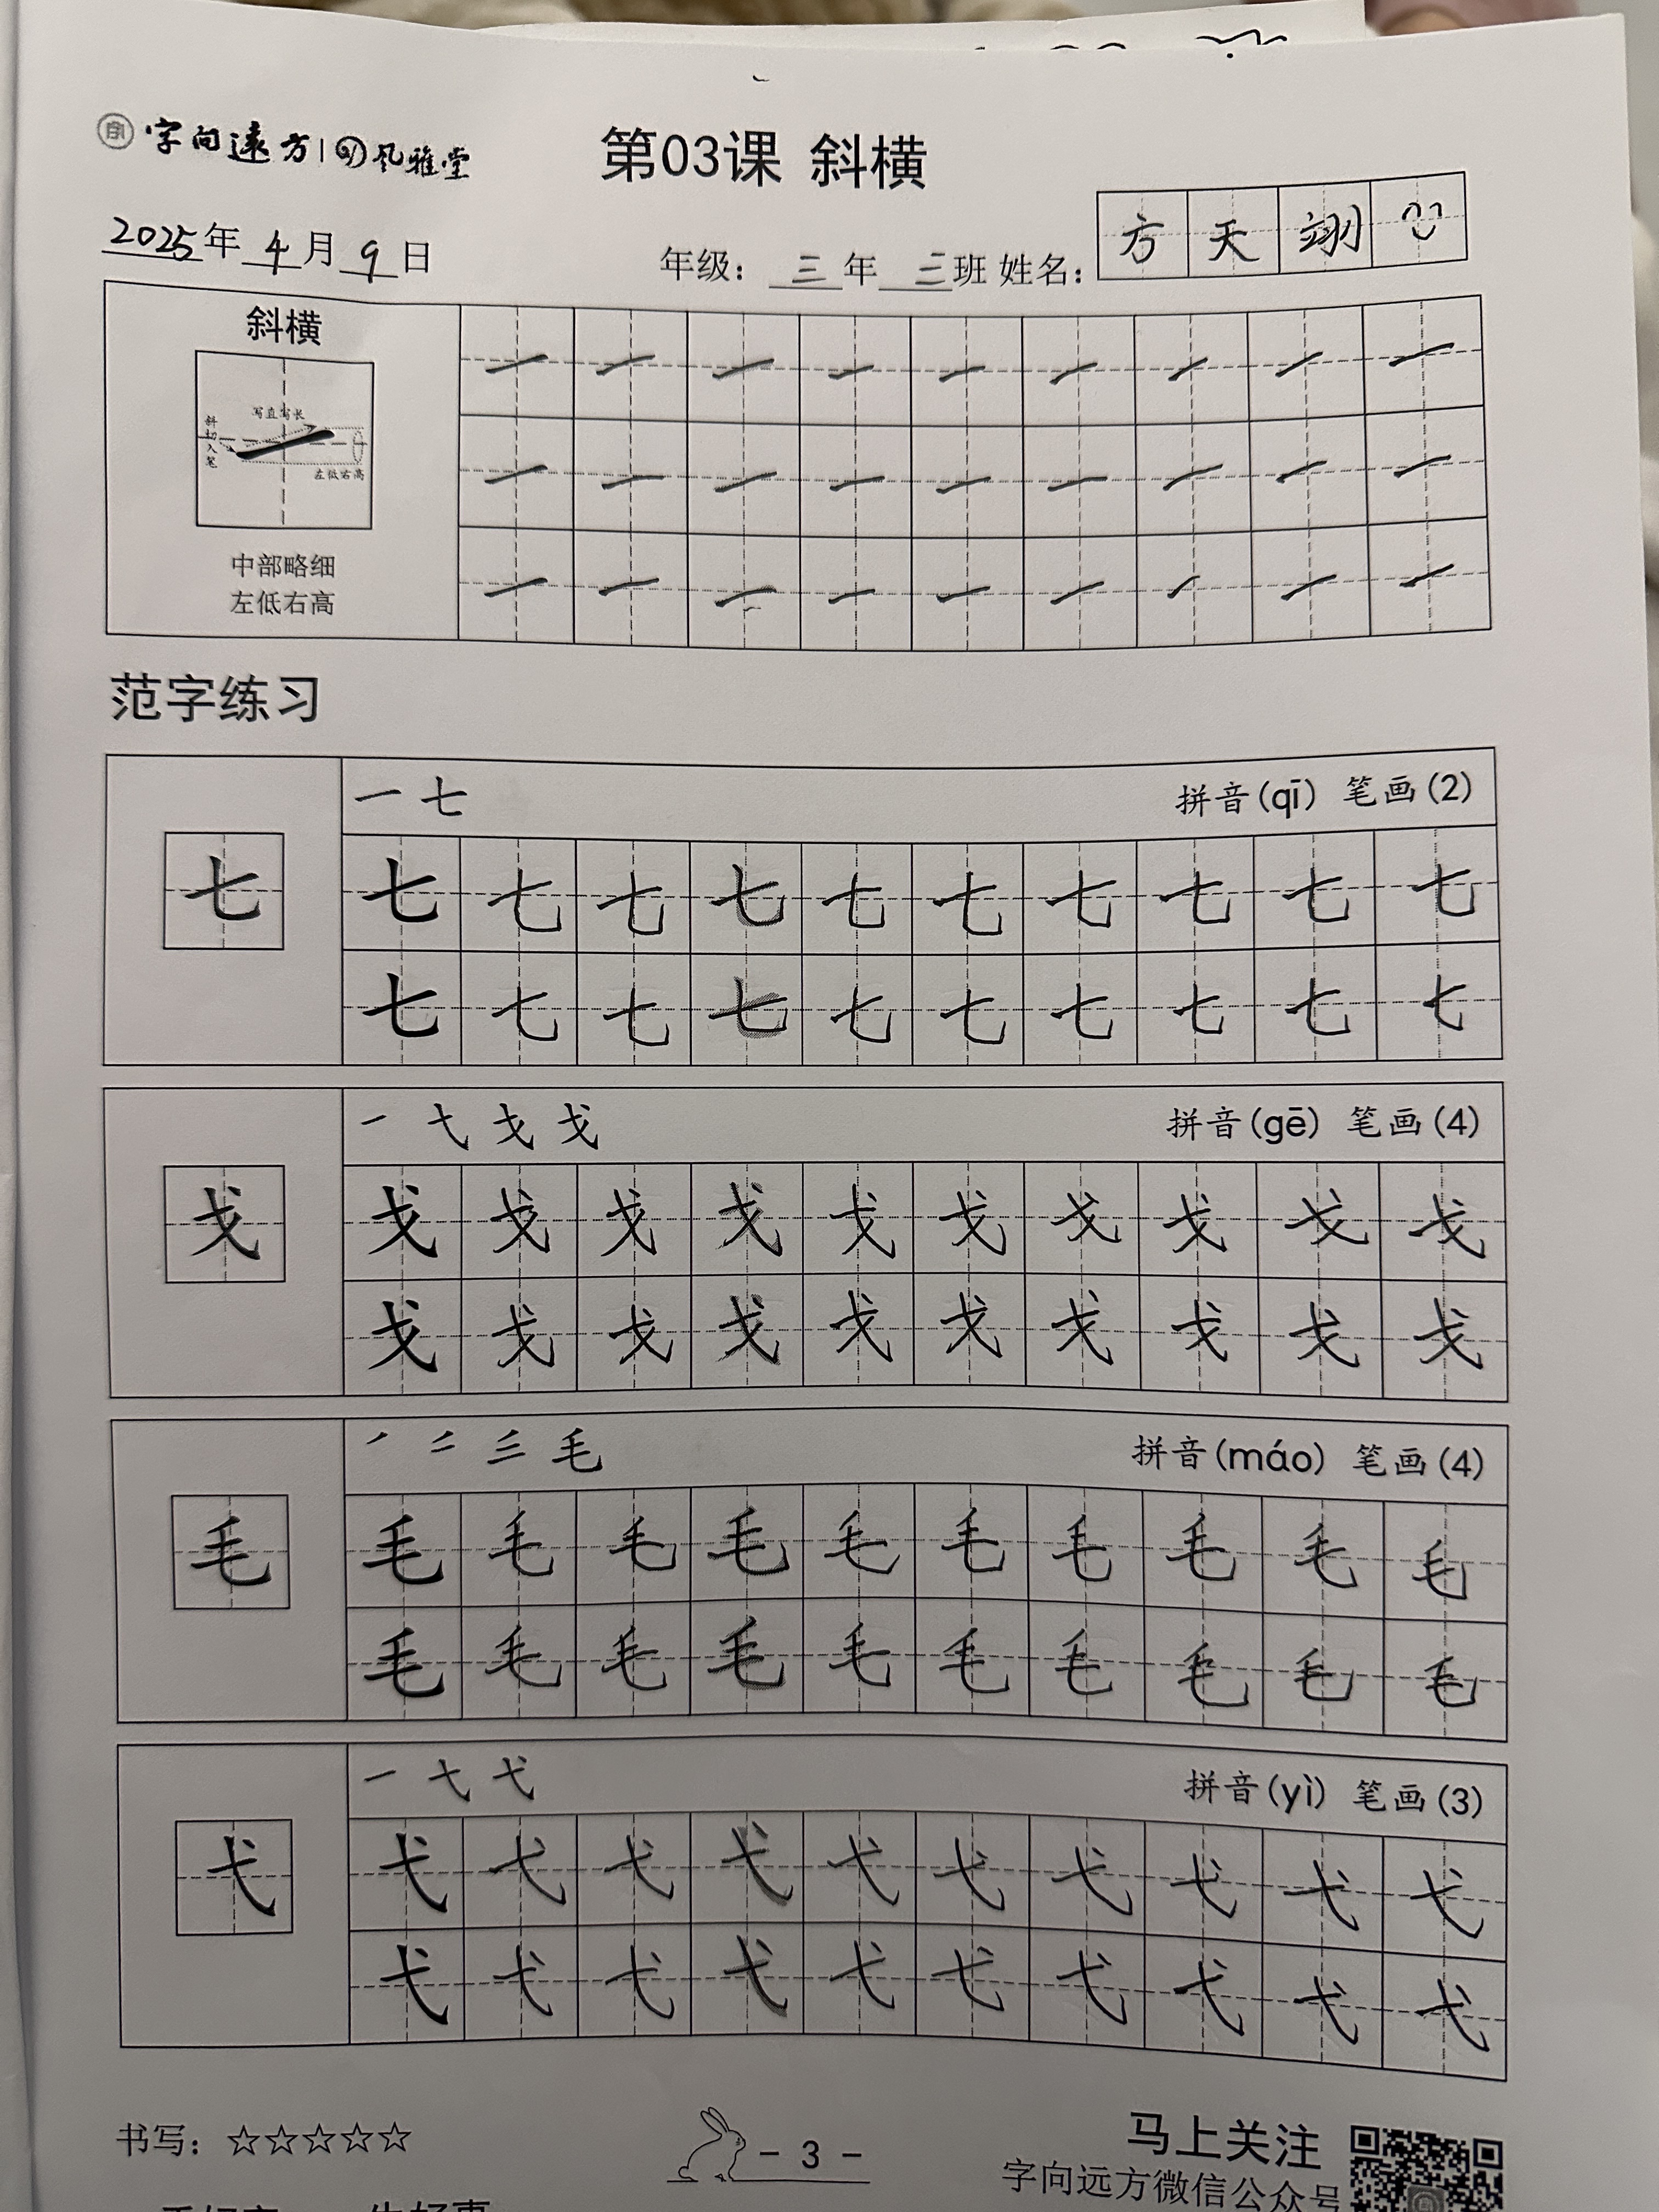 字向遠方|风雅堂
第03课 斜横
2025年4月9日 年级：三年三班 姓名：方天翊
斜横
写直写长
斜切入笔
左低右高
中部略细
左低右高
范字练习
一 七 拼音(qī) 笔画(2)
七 七 七 七 七 七 七 七 七 七 七
七 七 七 七 七 七 七 七 七 七
一 弋 戈 戈 拼音(gē) 笔画(4)
戈 戈 戈 戈 戈 戈 戈 戈 戈 戈 戈
戈 戈 戈 戈 戈 戈 戈 戈 戈 戈
毛 拼音(máo) 笔画(4)
毛 毛 毛 毛 毛 毛 毛 毛 毛 毛 毛
毛 毛 毛 毛 毛 毛 毛 毛 毛 毛
一 弋 拼音(yì) 笔画(3)
弋 弋 弋 弋 弋 弋 弋 弋 弋 弋 弋
弋 弋 弋 弋 弋 弋 弋 弋 弋 弋
书写：☆☆☆☆☆ - 3 - 马上关注
字向远方微信公众号